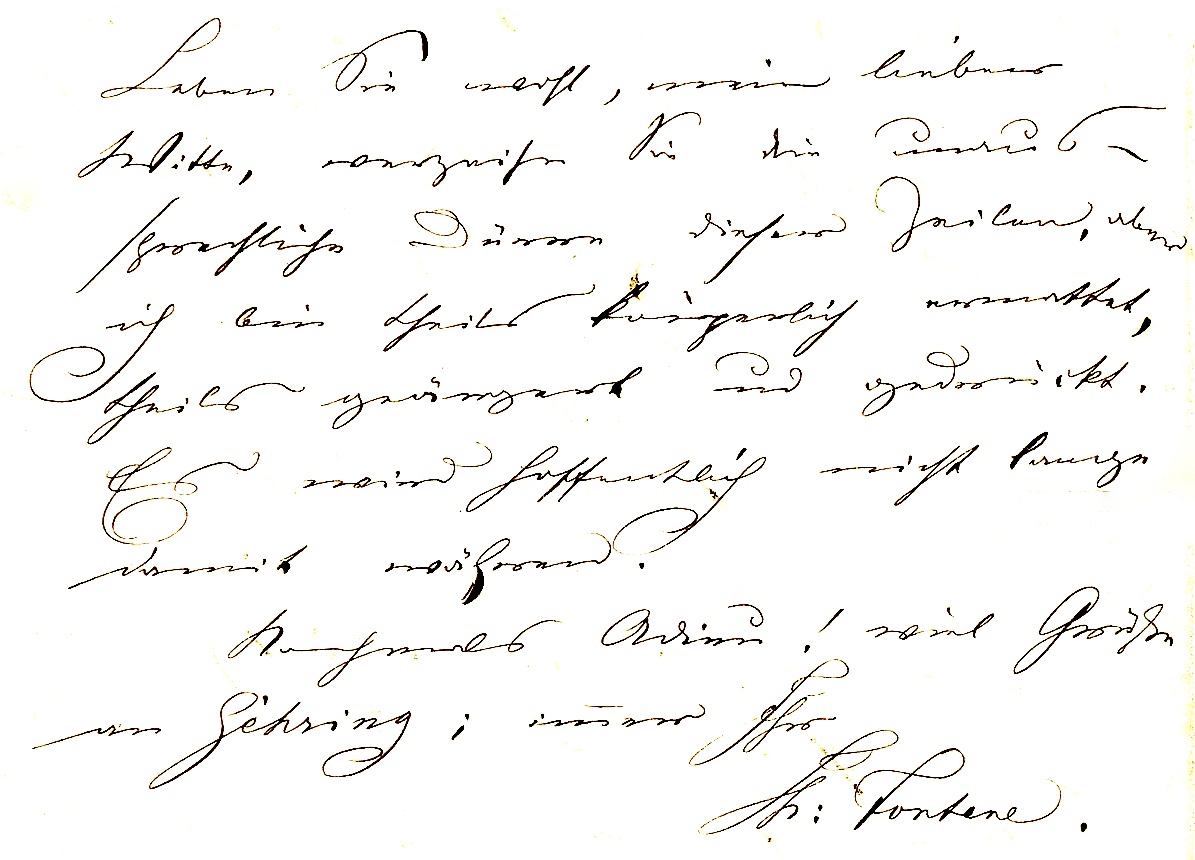 Leben Sie wohl, mein lieber
Witte, verzeihn Sie die unaus-
sprechliche Dürre dieser Zeilen, aber
ich bin theils körperlich ermattet,
theils geärgert und gedrückt.
Es wird hoffentlich nicht lange
damit währen.
Nochmals Adieu! viel Grüße
an Gehring; immer Ihr
Th: Fontane.